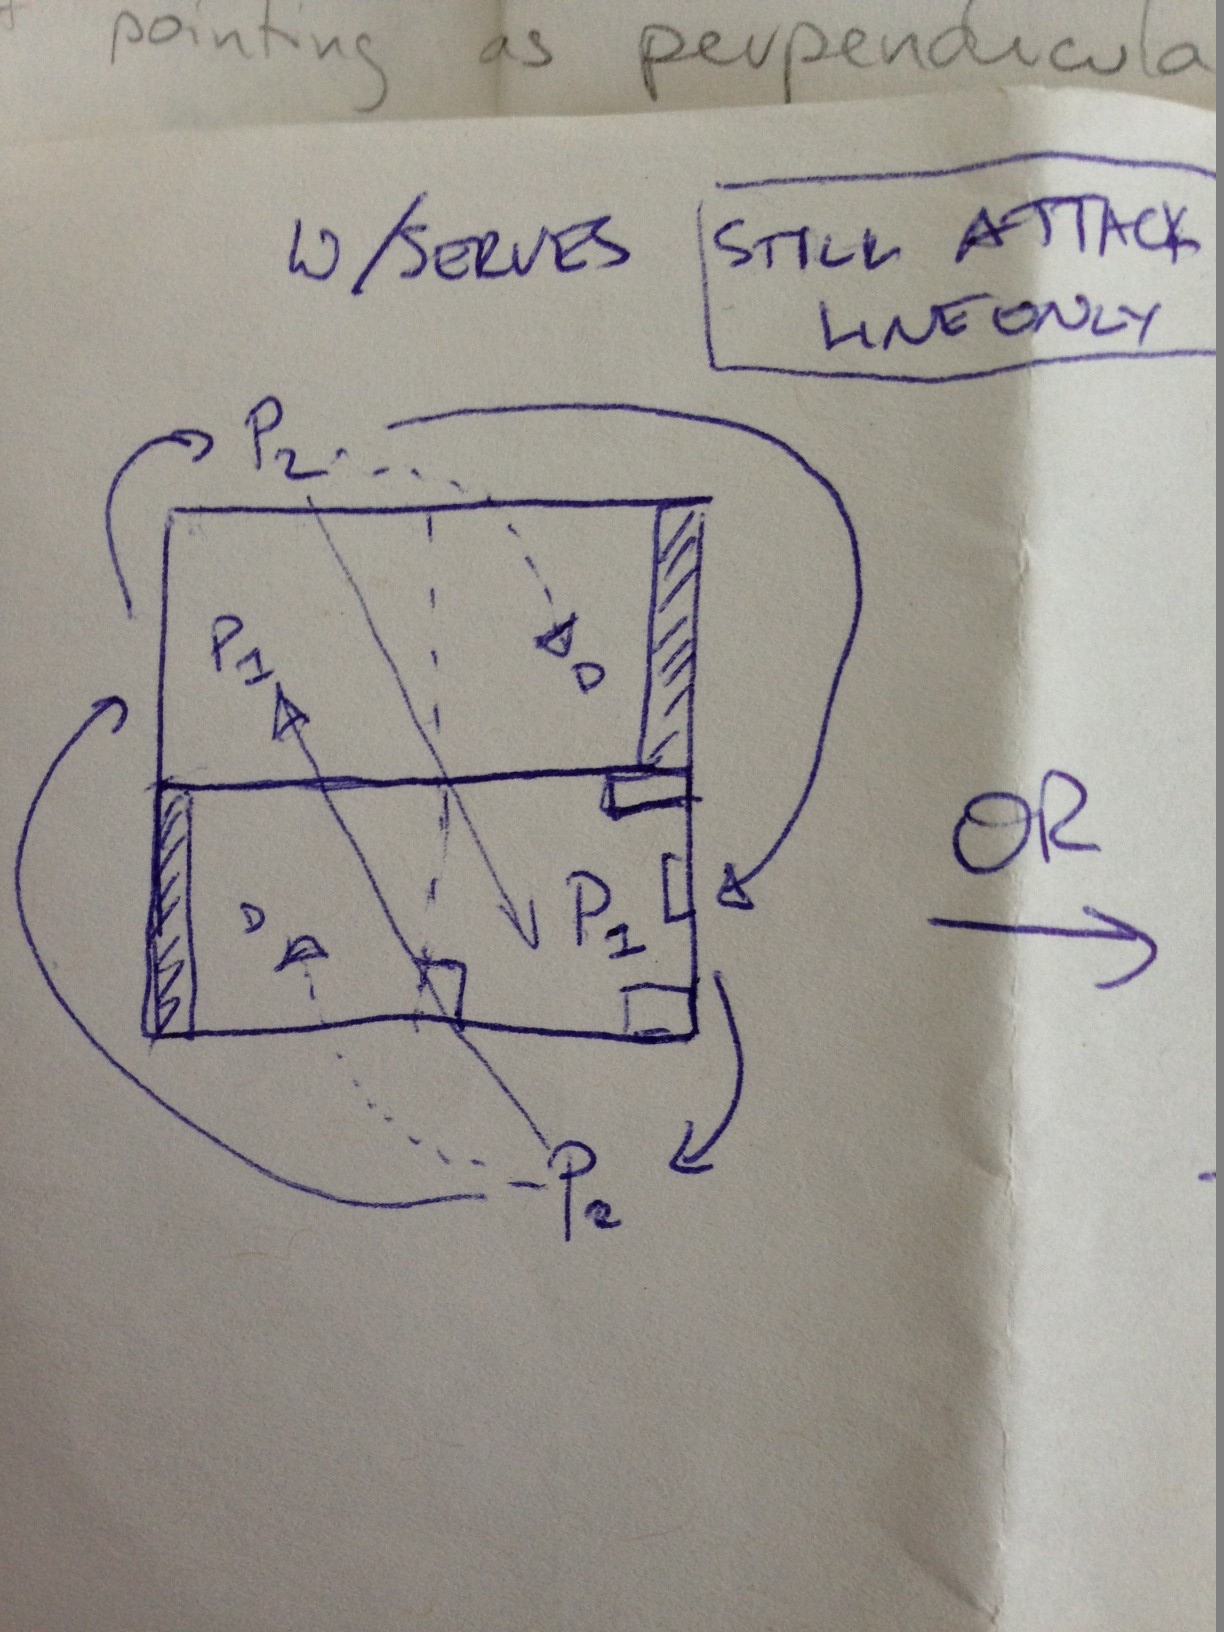 pointing as perpendicula
W/SERVES
STILL ATTACK
LINE ONLY
P2
P1
D
OR
D
P1
P2